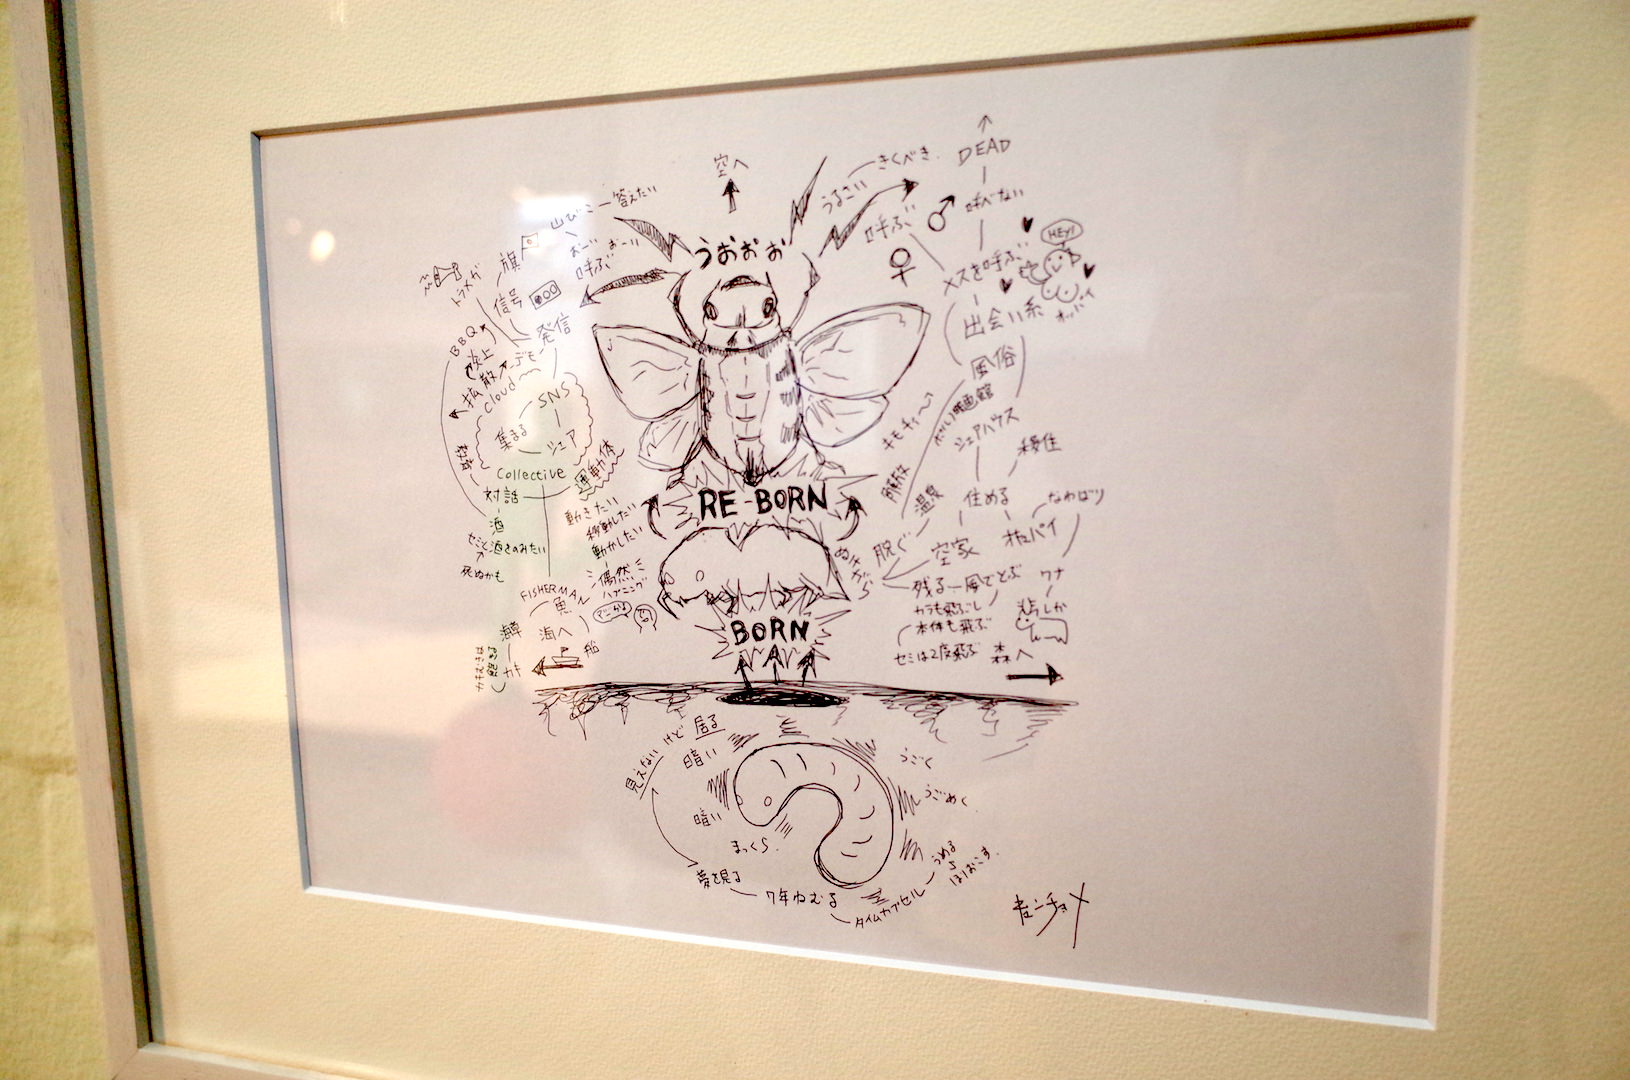 DEAD
空へ
きくべき.
うるさい
呼べない
答えたい
山びこ
おーい おーい
呼ぶ
旗
うおぉぉ
呼ぶ
♂
♀
HEY!
メスを呼ぶ
オッパイ
出会い系
トラメガ
信号
発信
BBQ
炎上
デモ
拡散
Cloud
SNS
集まる
シェア
collective
運動体
対話
酒
セミと酒をのみたい
死ぬかも
動きたい
移動したい
動かしたい
偶然
ハプニング
風俗
キモチィー
シェアハウス
移住
解放
温泉
住める
なわばり
脱ぐ
空家
ぬけがら
残る
風でとぶ
カラも飛ぶし
本体も飛ぶ
セミは2度飛ぶ
ワナ
森へ
RE-BORN
BORN
FISHERMAN
魚
海へ
船
海草
カキ
見えない けど 居る
暗い
暗い
まっくら.
うごく
うごめく
うめる
ほりおこす.
夢を見る
7年ねむる
タイムカプセル